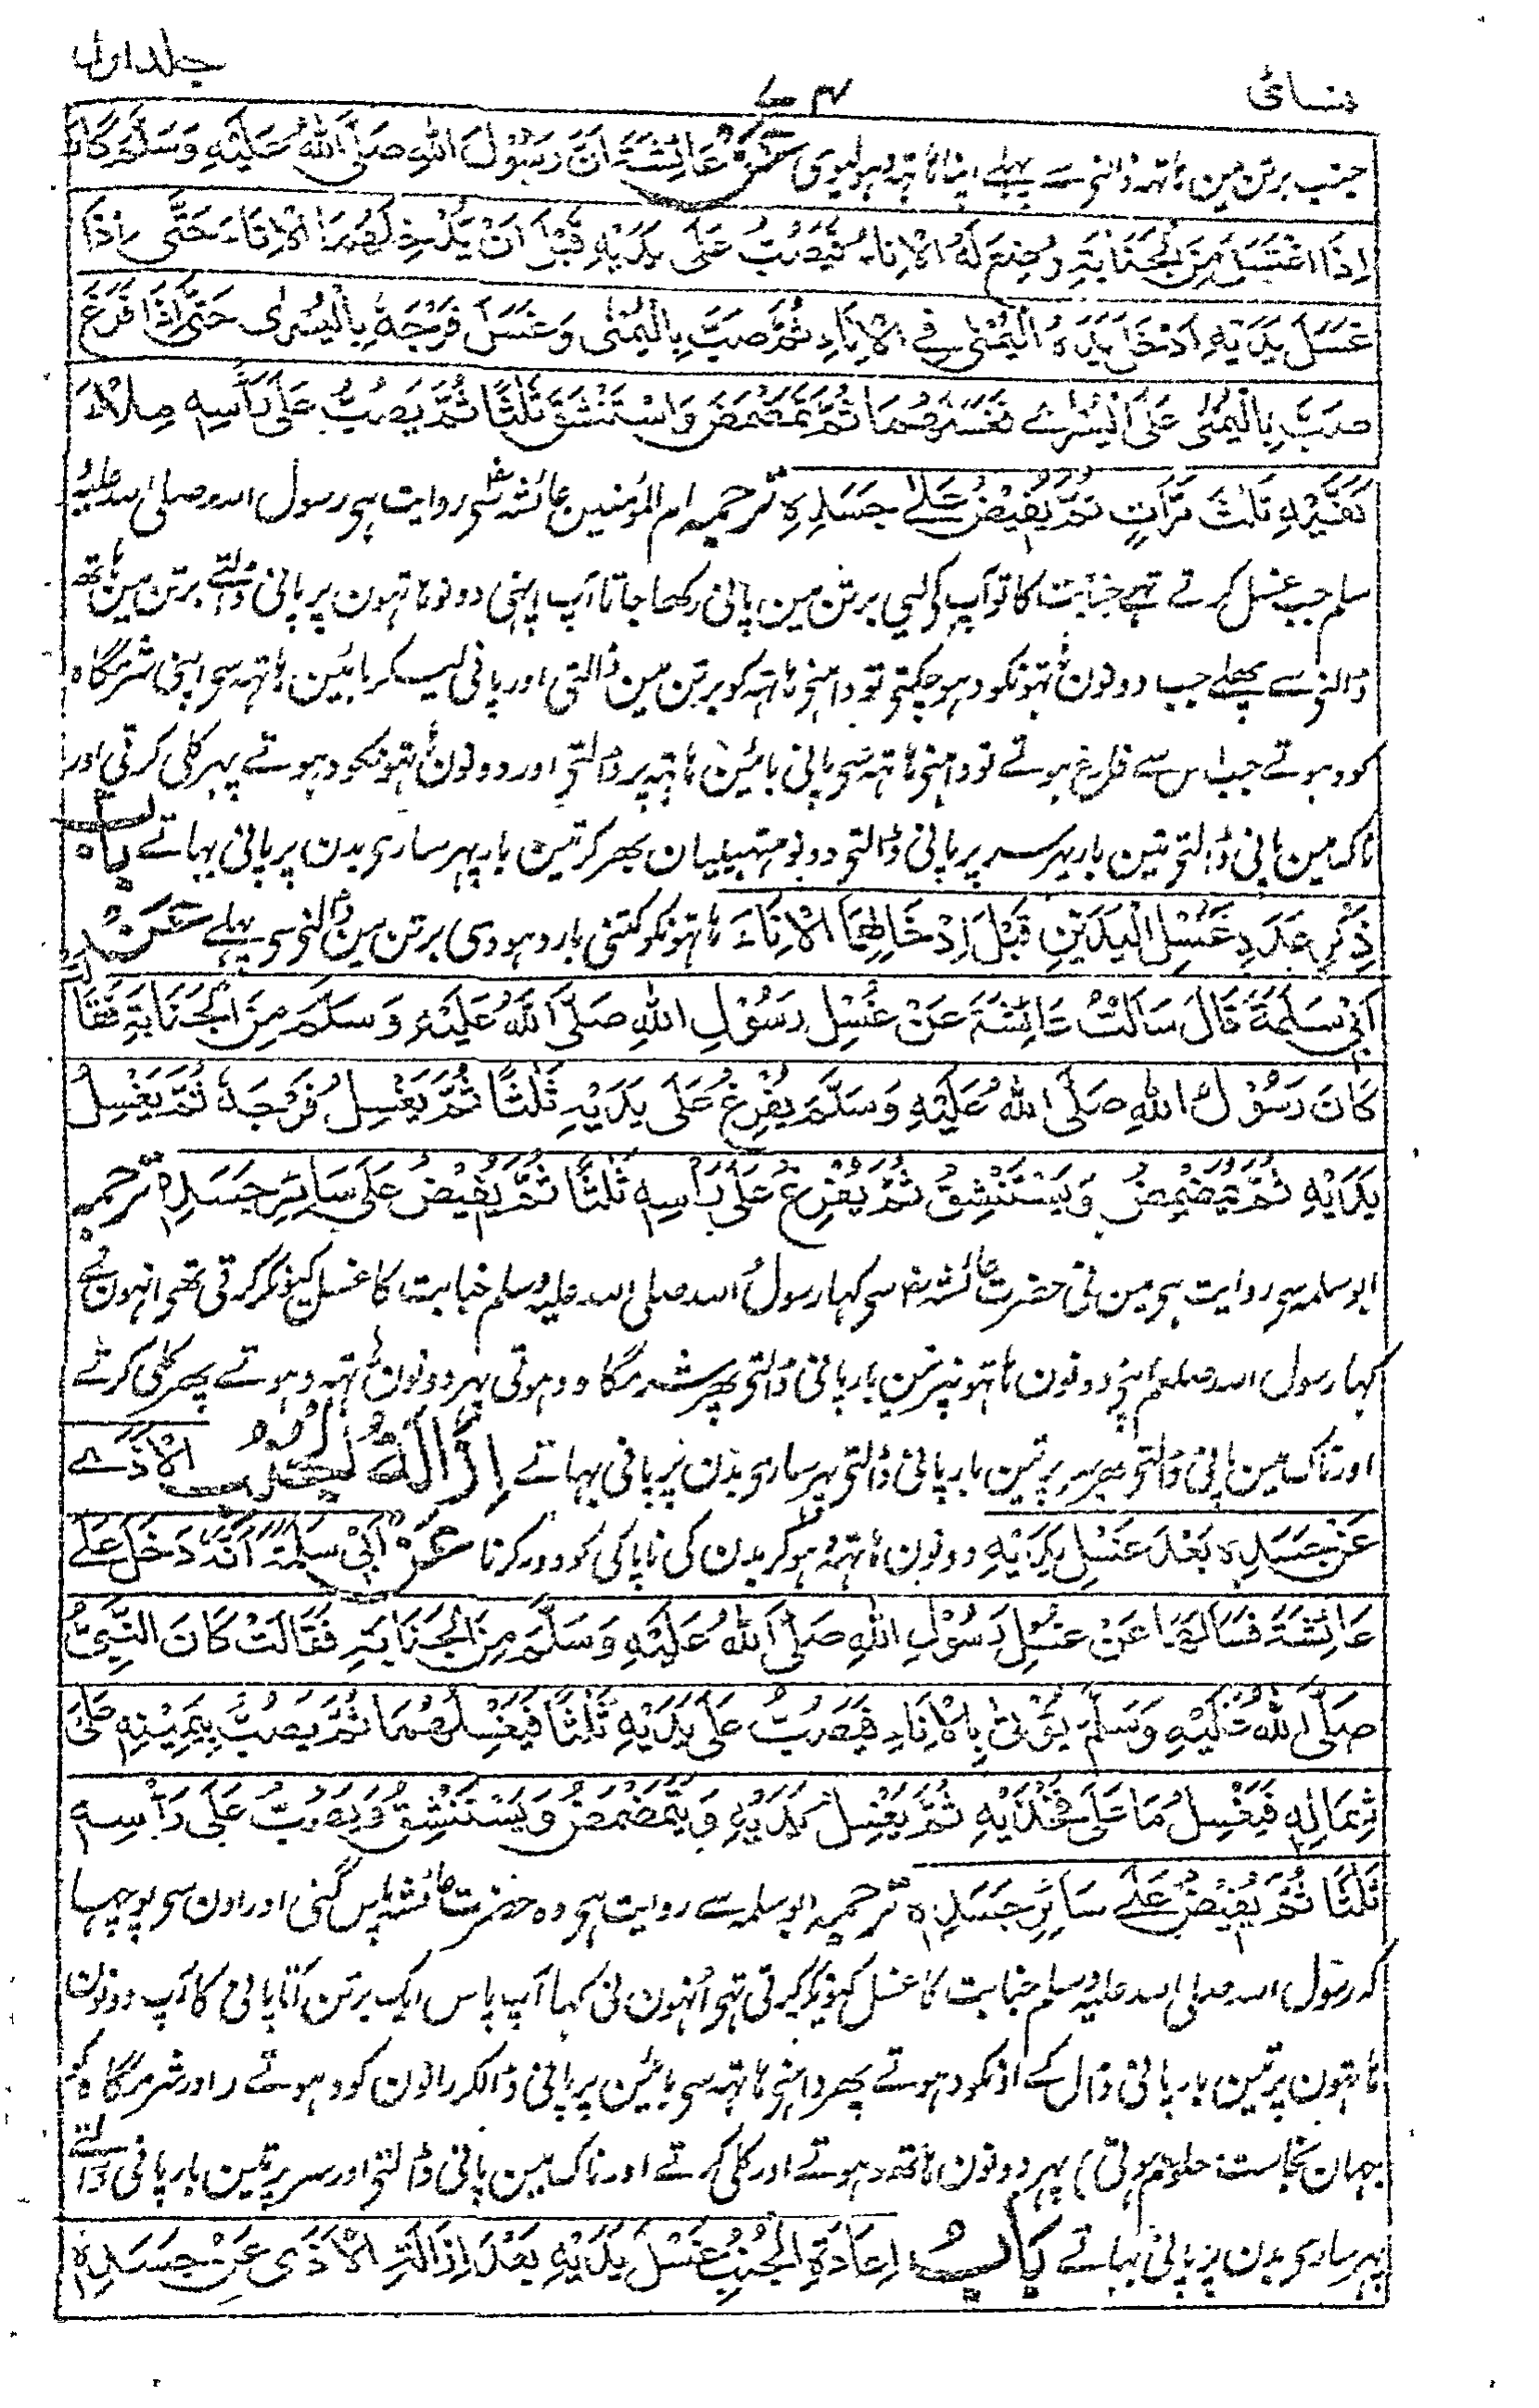 نسائی ۷۴ جلد اول
جنب برتن مین ہاتہہ ڈالنی سے پہلے اپنا ہاتہہ دہولیوی عَنْ عَائِشَةَ اَنَّ رَسُوْلَ اللهِ صَلَّى اللهُ عَلَيْهِ وَسَلَّمَ كَانَ
اِذَا اغْتَسَلَ مِنَ الْجَنَابَةِ وُضِعَ لَهُ الْاِنَاءُ فَيَصُبُّ عَلَى يَدَيْهِ قَبْلَ اَنْ يُدْخِلَهُمَا الْاِنَاءَ حَتَّى اِذَا
غَسَلَ يَدَيْهِ اَدْخَلَ يَدَهُ الْيُمْنٰى فِے الْاِنَاءِ ثُمَّ صَبَّ بِالْيُمْنٰى وَغَسَلَ فَرْجَهٗ بِالْيُسْرٰى حَتَّى اِذَا فَرَغَ
صَبَّ بِالْيُمْنٰى عَلَى الْيُسْرٰے فَغَسَلَهُمَا ثُمَّ تَمَضْمَضَ وَاسْتَنْشَقَ ثَلٰثًا ثُمَّ يَصُبُّ عَلٰى رَاْسِهٖ مِلْاَءَ
كَفَّيْهِ ثَلٰثَ مَرَّاتٍ ثُمَّ يُفِيْضُ عَلٰے جَسَدِهٖ ترجمہ ام المؤمنین عائشہؓ سی روایت ہی رسول اللہ صلی اللہ علیہ
سلم جب غسل کرتے تہے جنابت کا تو آپ کو لیی برتن مین پانی رکھا جاتا آپ اپنی دونو ہاتہون پر پانی ڈالتے برتن مین ہاتھ
ڈالنی سے پہلے جب دونون ہاتہونکو دہو چکتی تو داہنی ہاتہہ کو برتن مین ڈالتی اور پانی لیکر بائین ہاتہہ سی اپنی شرمگاہ
کو دہوتے جب اس سے فارغ ہوتے تو داہنی ہاتہہ سی پانی بائین ہاتہہ پر ڈالتی اور دونون ہاتہونکو دہوتے پہر کلی کرتی اور
ناک مین پانی ڈالتی تین بار پہر سر پر پانی ڈالتی دونو ہتہیلیان بھر کر تین بار پہر ساری بدن پر پانی بہاتے بَابُ
ذِكْرِ عَدَدِ غَسْلِ الْيَدَيْنِ قَبْلَ اِدْخَالِهِمَا الْاِنَاءَ ہاتہونکو کتنی بار دہووی برتن مین ڈالنی سی پہلے عَنْ
اَبِيْ سَلَمَةَ قَالَ سَاَلْتُ عَائِشَةَ عَنْ غُسْلِ رَسُوْلِ اللهِ صَلَّى اللهُ عَلَيْهِ وَسَلَّمَ مِنَ الْجَنَابَةِ فَقَالَتْ
كَانَ رَسُوْلُ اللهِ صَلَّى اللهُ عَلَيْهِ وَسَلَّمَ يُفْرِغُ عَلَى يَدَيْهِ ثَلٰثًا ثُمَّ يَغْسِلُ فَرْجَهٗ ثُمَّ يَغْسِلُ
يَدَيْهِ ثُمَّ يُمَضْمِضُ وَيَسْتَنْشِقُ ثُمَّ يُفْرِغُ عَلٰى رَاْسِهٖ ثَلٰثًا ثُمَّ يُفِيْضُ عَلٰى سَائِرِ جَسَدِهٖ ترجمہ
ابو سلمہ سی روایت ہی مین نی حضرت عائشہ رضہ سی کہا رسول اللہ صلی اللہ علیہ وسلم جنابت کا غسل کیونکر کرتی تھی انہون نے
کہا رسول اللہ صلعم اپنی دونون ہاتہونپر تین بار پانی ڈالتی پھر شرمگاہ دہوتی پہر دونون ہاتہہ دہوتے پھر کلی کرتے
اور ناک مین پانی ڈالتی پھر سر پر تین بار پانی ڈالتی پہر ساری بدن پر پانی بہاتے اِزَالَةُ الْجُنُبِ الْاَذٰے
عَنْ جَسَدِهٖ بَعْدَ غَسْلِ يَدَيْهِ دونون ہاتہہ دہوکر بدن کی ناپاکی کو دور کرنا عَنْ اَبِيْ سَلَمَةَ اَنَّهٗ دَخَلَ عَلٰے
عَائِشَةَ فَسَاَلَهَا عَنْ غُسْلِ رَسُوْلِ اللهِ صَلَّى اللهُ عَلَيْهِ وَسَلَّمَ مِنَ الْجَنَابَةِ فَقَالَتْ كَانَ النَّبِيُّ
صَلَّى اللهُ عَلَيْهِ وَسَلَّمَ يُؤْتٰى بِالْاِنَاءِ فَيَصُبُّ عَلٰى يَدَيْهِ ثَلٰثًا فَيَغْسِلُهُمَا ثُمَّ يَصُبُّ بِيَمِيْنِهٖ عَلٰى
شِمَالِهٖ فَيَغْسِلُ مَا عَلٰى فَخِذَيْهِ ثُمَّ يَغْسِلُ يَدَيْهِ وَيَتَمَضْمَضُ وَيَسْتَنْشِقُ وَيَصُبُّ عَلٰى رَاْسِهٖ
ثَلٰثًا ثُمَّ يُفِيْضُ عَلٰے سَائِرِ جَسَدِهٖ ترجمہ ابو سلمہ سے روایت ہی وہ حضرت عائشہ پاس گئی اور اون سی پوچہا
کہ رسول اللہ صلی اللہ علیہ وسلم جنابت کا غسل کیونکر کرتی تہی اُنہون نی کہا آپ پاس ایک برتن آتا پانی کا آپ دونون
ہاتہون پر تین بار پانی ڈال کے اونکو دہوتے پھر داہنی ہاتہہ سی بائین پر پانی ڈالکر رانون کو دہوتے (اور شرمگاہ کو
جہان نجاست معلوم ہوتی) پہر دونون ہاتھ دہوتے اور کلی کرتے اور ناک مین پانی ڈالتی اور سر پر تین بار پانی ڈالتے
پہر ساری بدن پر پانی بہاتے بَابُ اِعَادَةِ الْجُنُبِ غَسْلَ يَدَيْهِ بَعْدَ اِزَالَةِ الْاَذٰى عَنْ جَسَدِهٖ